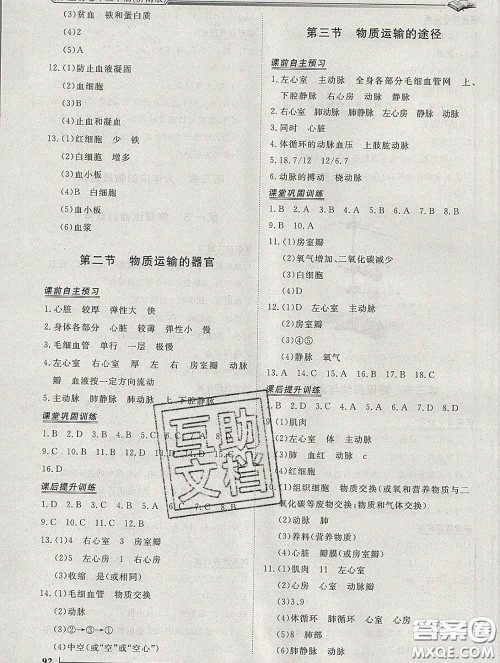 (3)贫血 铁和蛋白质
(4)白 大
12. (1)防止血液凝固
(2)血细胞
(3)血小板
(4)止血和凝血
13. (1)红细胞 少 铁
(2)白细胞 增多
(3)血小板
(4)B 白细胞
(5)血小板
(6)血浆
第二节 物质运输的器官
课前自主预习
1. 心脏 较厚 弹性大 快
2. 身体各部分 心脏 较薄 弹性小 慢
3. 毛细血管 单行 一层 极慢
4. 左心室 右心房 厚 左 右 房室瓣 动脉
瓣 血液按一定方向流动
5. 主动脉 肺动脉 肺静脉 上、下腔静脉
课堂巩固训练
1. B 2. D 3. B 4. B 5. C 6. A
9. C 10. B 11. D 12. D 13. B 14.
16. D
课后提升训练
1. D 2. B 3. C 4. C 5. D 6. C 7. C 8. B
13. (1)4 右心室 3 房室瓣
(2)5 左心房 1 右心房
(3)收缩 是(或相同)
14. (1)毛细血管 物质交换
(2)动脉
(3)②→③→①
(4)中空(或“空”或“空心”)
92
第三节 物质运输的途径
课前自主预习
1. 左心室 主动脉 全身各部分毛细血管网 上、
下腔静脉 右心房 动脉 静脉
2. 右心室 肺动脉 肺静脉 左心房 静脉 动脉
3. 同时 心脏
4. 体循环的动脉血压 上肢肱动脉
5. 18.7/12 12/6.7
6. 动脉的搏动 桡动脉
课堂巩固训练
1. B 2. A 3. C 4. D 5. D 6. B 7. B 8. B
9. C 10. A
11. (1)房室瓣
(2)氧气增加、二氧化碳减少
(3)白细胞
(4)
12. (1)D 左心室 主动脉
(2)房室瓣
(3)④⑤
(4)静脉 氧气
13. A 14. C 15. C 16. D
课后提升训练
9. (1)肌肉
(2)左心室 体 主动脉
(3)肺 血红蛋白 动脉 c
(4)红细胞
10. (1)组织细胞 物质交换(或氧和营养物质与二
氧化碳等废物交换)(或物质和气体交换)
(2)动脉 肺
(3)养料(或营养物质)
(4)心脏 瓣膜(或房室瓣)
11. (1)肌肉 11 左心室 房室瓣
(2)
(3)
(4)体循环 肺循环 动脉
(5)8 肺 主动脉
互助文档
答案圈